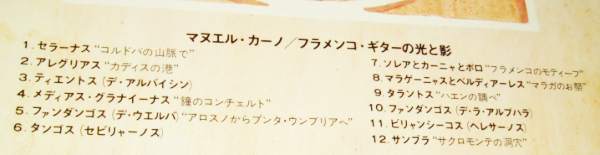 マヌエル・カーノ／フラメンコ・ギターの光と影
1. セラーナス “コルドバの山脈で”
2. アレグリアス “カディスの港”
3. ティエントス (デ・アルバイシン)
4. メディアス・グラナイーナス “鐘のコンチェルト”
5. ファンダンゴス (デ・ウエルバ) “アロスノからプンタ・ウンブリアへ”
6. タンゴス (セビリャーノス)
7. ソレアとカーニャとポロ “フラメンコのモティーフ”
8. マラゲーニャスとベルディアーレス “マラガのお祭”
9. タラントス “ハエンの調べ”
10. ファンダンゴス (デ・ラ・アルプハラ)
11. ビリャンシーコス (ヘレサーノス)
12. サンブラ “サクロモンテの洞穴”